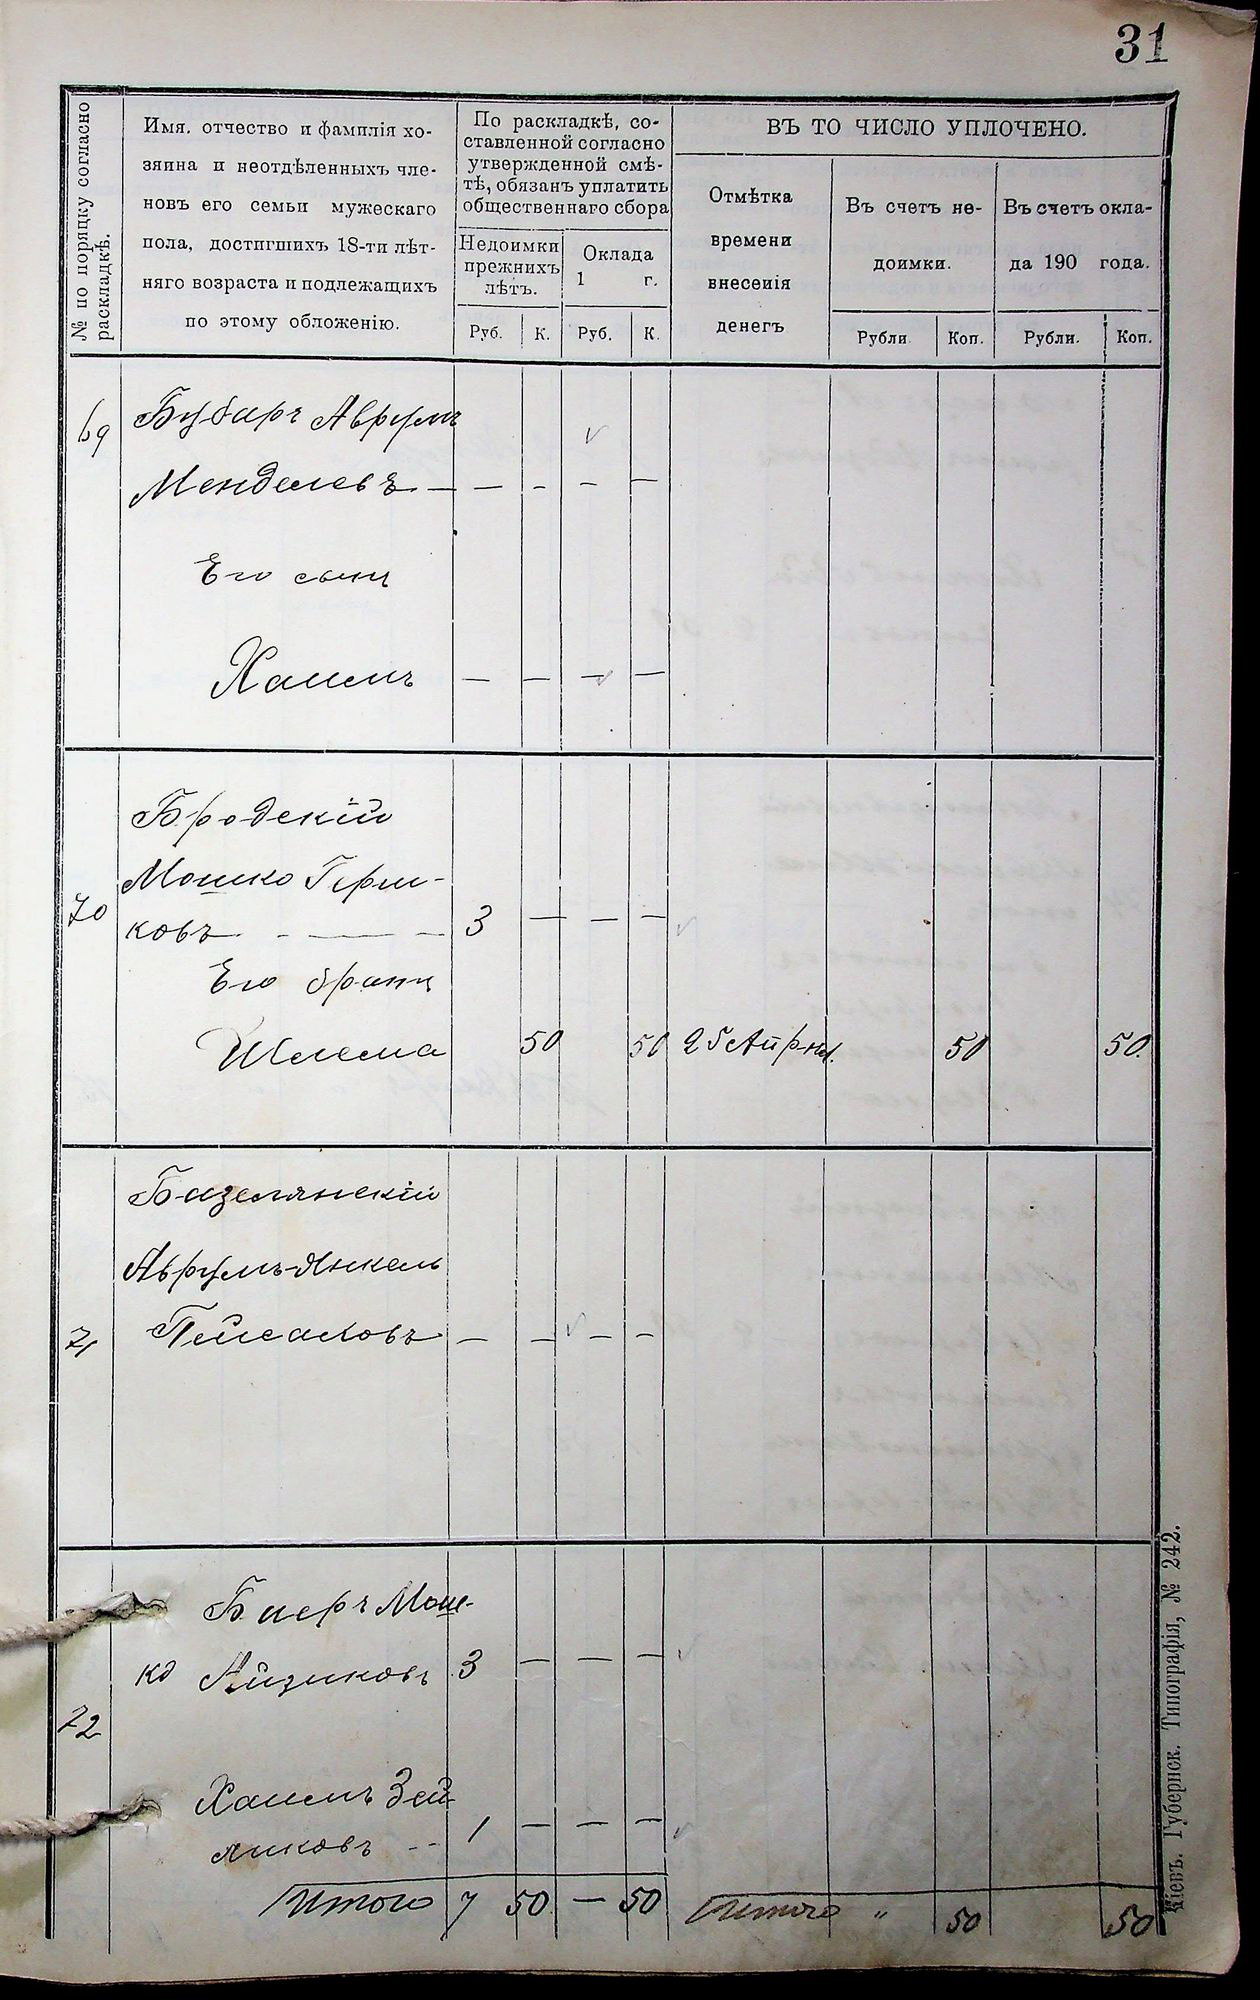 31
№ по поряцку согласно раскладкѣ.
Имя, отчество и фамилія хо-
зяина и неотдѣленныхъ чле-
новъ его семьи мужескаго
пола, достигшихъ 18-ти лѣт-
няго возраста и подлежащихъ
по этому обложенію.
По раскладкѣ, со-
ставленной согласно
утвержденной смѣ-
тѣ, обязанъ уплатить
общественнаго сбора
Недоимки
прежнихъ
лѣтъ.
Оклада
1 г.
Руб. К. Руб. К.
ВЪ ТО ЧИСЛО УПЛОЧЕНО.
Отмѣтка
времени
внесенія
денегъ
Въ счетъ не-
доимки.
Въ счетъ окла-
да 190 года.
Рубли Коп. Рубли. Коп.
69 Бубаръ Аврумъ
Менделевъ — — - — —
Его сынъ
Хаимъ — — — —
Бродскій
Мошко Герш-
70 ковъ - — - 3 — — —
Его братъ
Шлема 50 50 25 Апрѣл. 50 50.
Базелянскій
Аврумъ-Янкель
71 Пейсаховъ — — — —
Биеръ Мош-
ко Айзиковъ 3 — — —
72
Хаимъ Зей-
ликовъ -- 1 — — —
Итого 7 50 — 50 Итого " 50 50
Кіевъ. Губернск. Типографія, № 242.